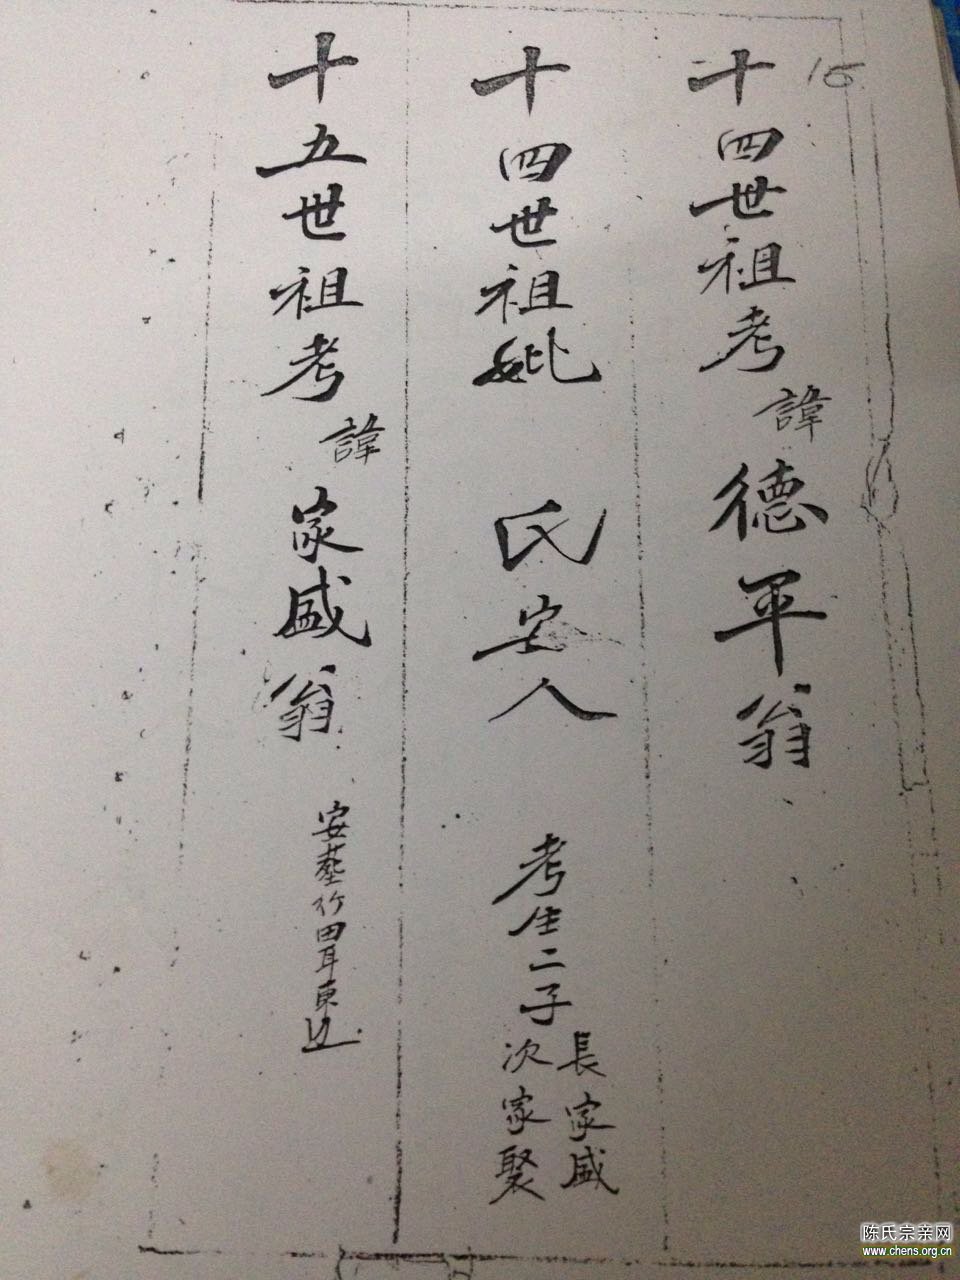 15
十四世祖考諱德平翁
十四世祖妣 氏安人 考生二子
長家盛
次家聚
十五世祖考諱家盛翁 安葬竹田耳東边
陈氏宗亲网
www.chens.org.cn